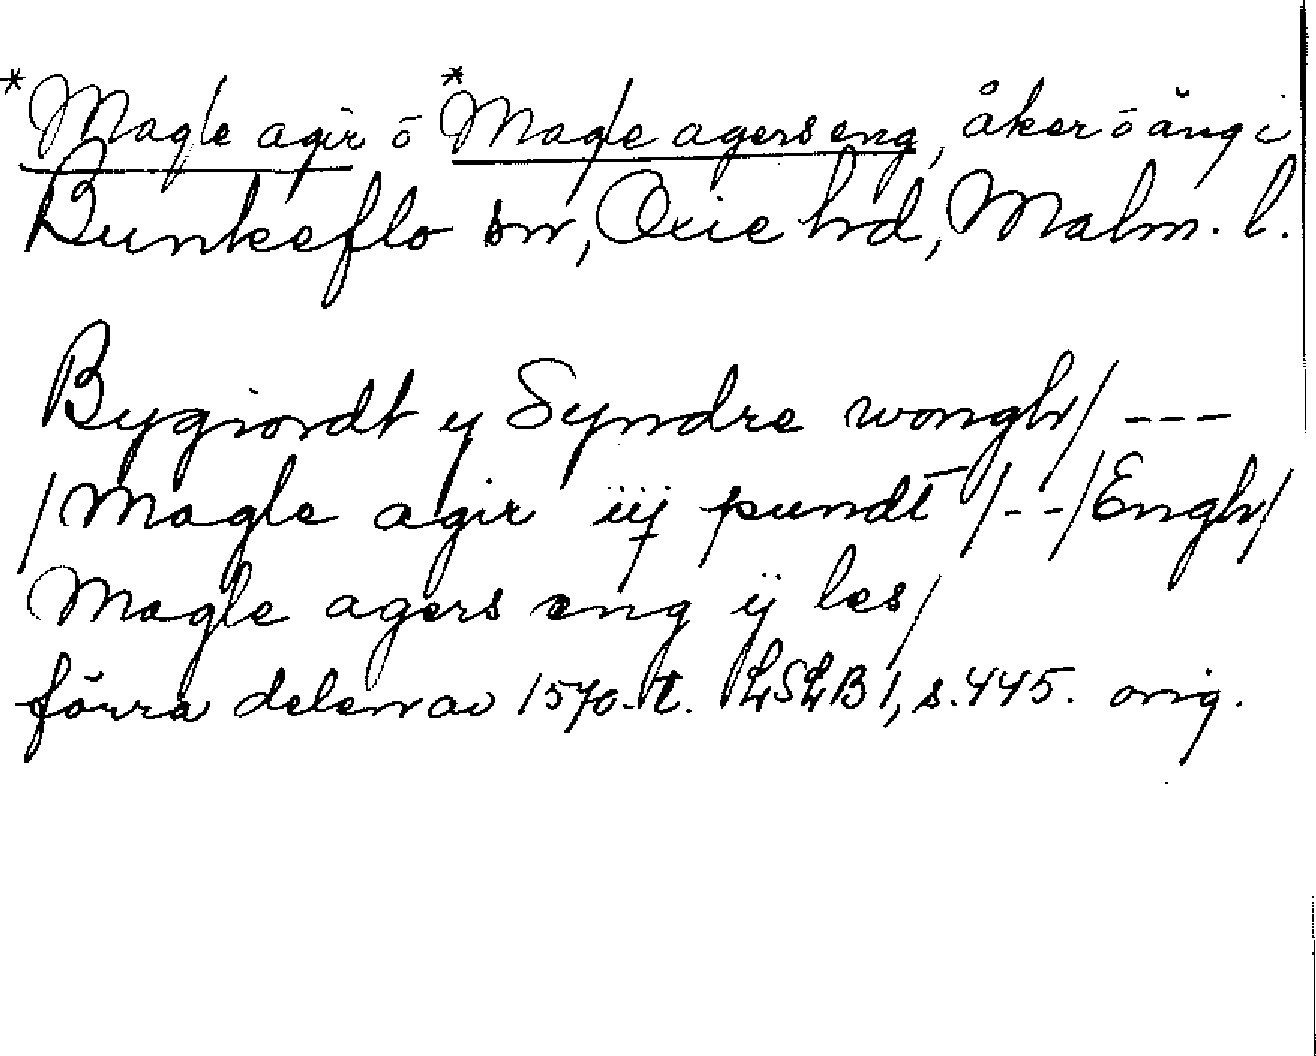 *Magle agir o *Magle agers eng, åker o äng i
Bunkeflo sn, Oxie hd, Malm. l.
Bygiordt y Syndre wongh/ ---
/Magle agir iij pundt /--/Engh/
Magle agers eng ij les/
förra delen av 1570-t. LSLB 1, s. 445. orig.